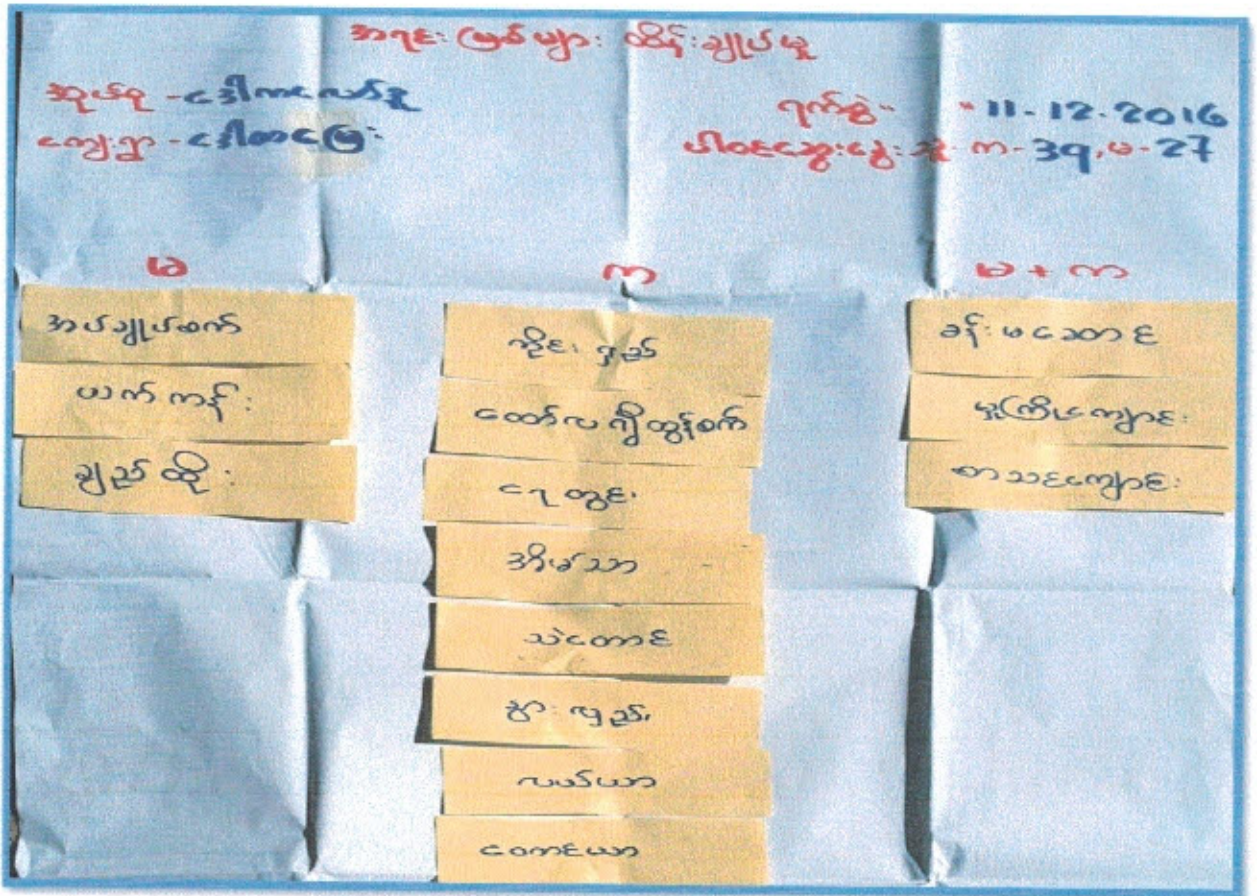 အရင်းမြစ်များ ထိန်းချုပ်မှု
အုပ်စု - ဒေါကလော်ဒူ
ကျေးရွာ - ဒေါတာမြေး
ရက်စွဲ - 11.12.2016
ပါဝင်ဆွေးနွေးသူ က - 39, မ - 27
မ
အပ်ချုပ်စက်
ယက်ကန်း
ချည်ထိုး
က
ကိုင်းရှည်
ထော်လဂျီထွန်စက်
ရေတွင်း
အိမ်သာ
သဲတောင်
နွားလှည်း
လယ်ယာ
ဝေကင်ယာ
မ + က
ခန်းမဆောင်
မူကြိုကျောင်း
စာသင်ကျောင်း